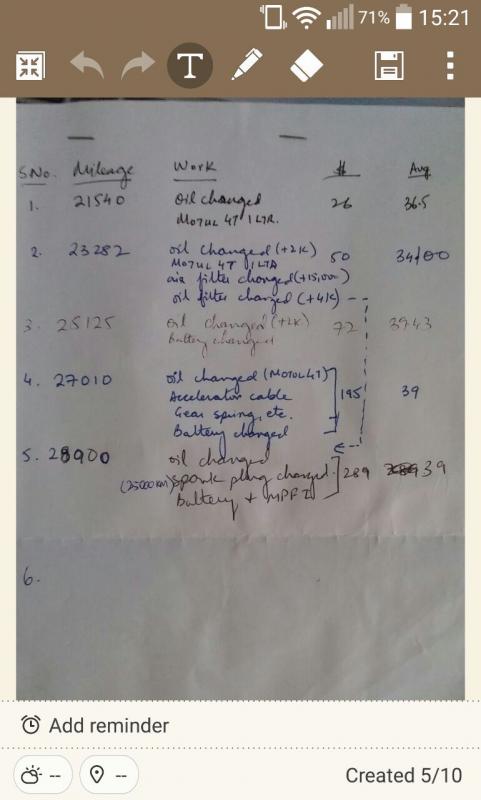 71% 15:21
T
SNo. Mileage Work $ Avg
1. 21540 oil changed 26 36.5
Motul 4T 1 LTR.
2. 23282 oil changed (+2K) 50
Motul 4T 1 LTR
air filter changed (+15,000)
oil filter changed (+4K)
3. 25125 oil changed (+2K) 72 3943
Battery changed
4. 27010 oil changed (MOTUL 4T) 195 39
Accelerator cable
Gear spring, etc.
Battery changed
5. 28900 oil changed
(25000 km) spark plug changed 289 39
Battery + MPFI
6.
Add reminder
-- --
Created 5/10